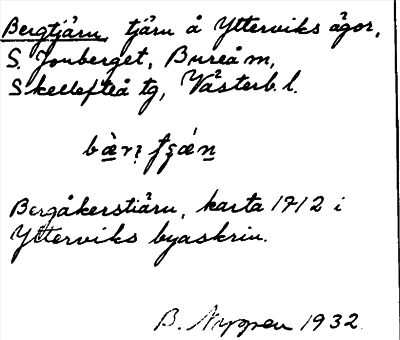 Bergtjärn tjärn å Ytterviks ägor,
S. Jonberget, Bureå m,
Skellefteå tg, Västerb. l.
Bergåkerstjärn, karta 1712 i
Ytterviks byaskrin.
B. Nygren 1932.